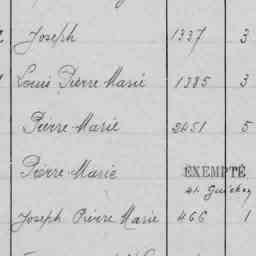 Joseph 1337 3
Louis Pierre Marie 1385 3
Pierre Marie 2451 5
Pierre Marie EXEMPTÉ
Joseph Pierre Marie 466 1